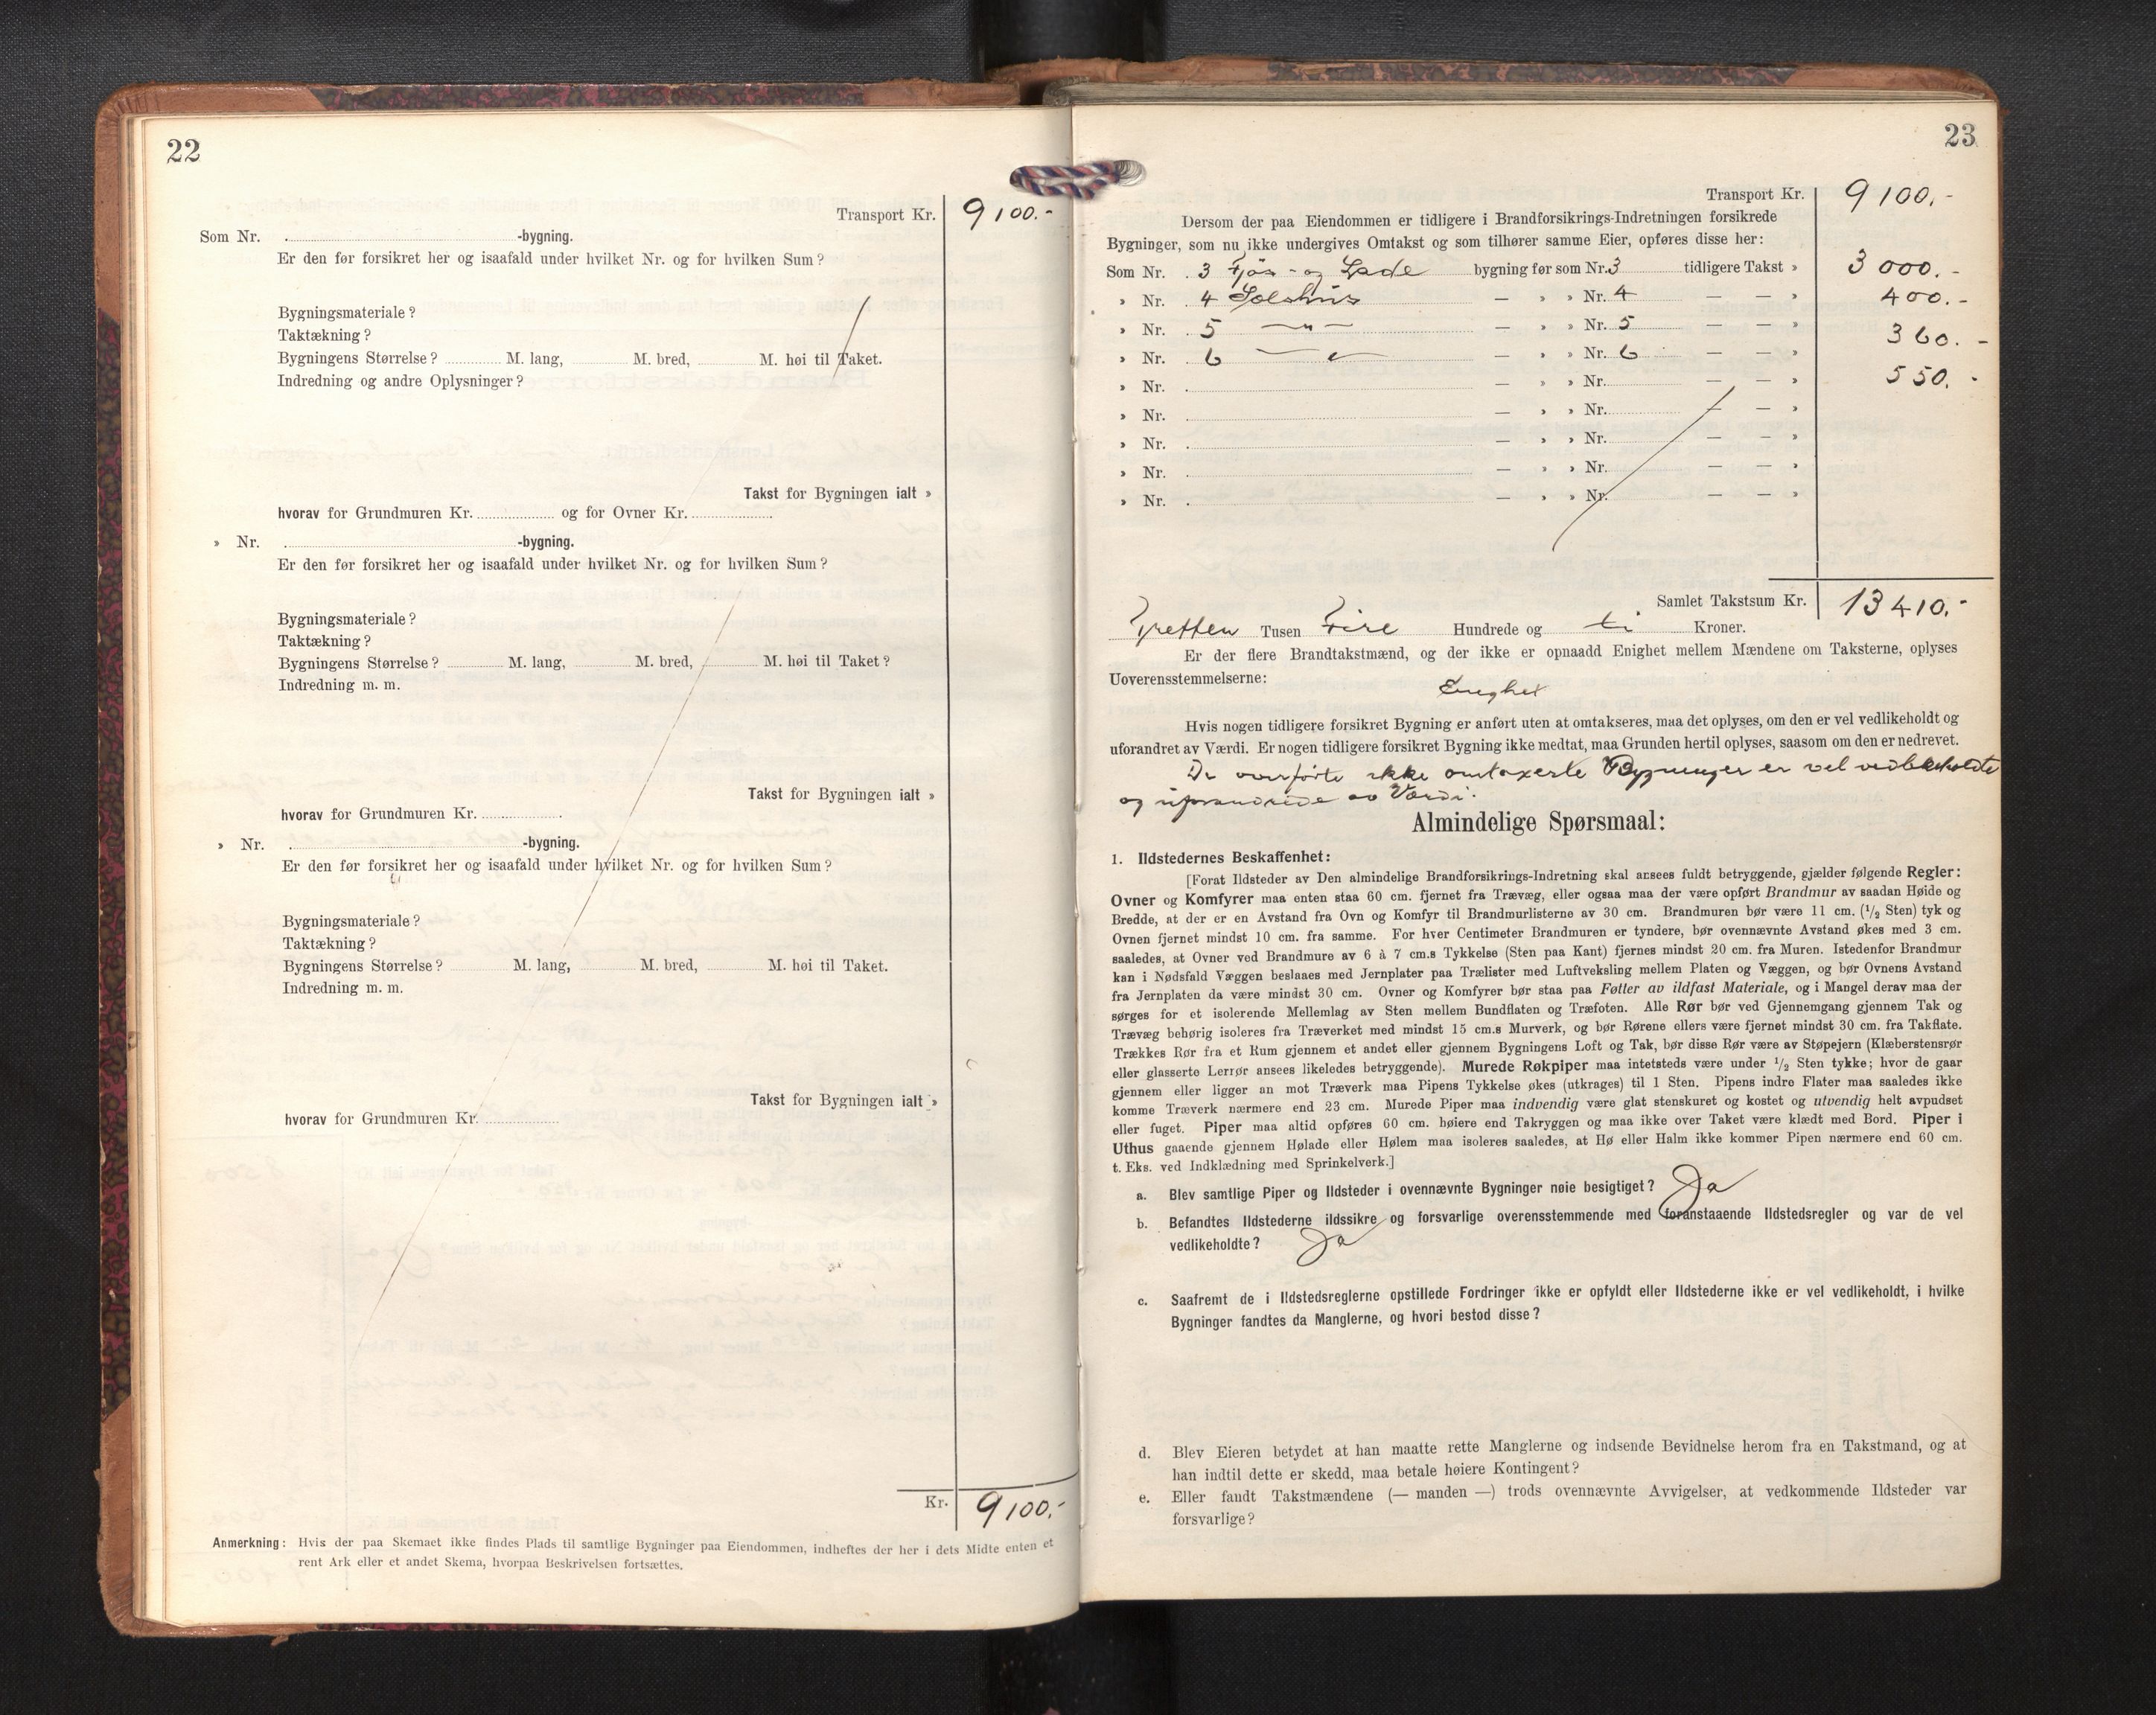 22
Transport Kr. 9100.-
Som Nr. -bygning.
Er den før forsikret her og isaafald under hvilket Nr. og for hvilken Sum?
Bygningsmateriale?
Taktækning?
Bygningens Størrelse? M. lang, M. bred, M. høi til Taket.
Indredning og andre Oplysninger?
Takst for Bygningen ialt »
hvorav for Grundmuren Kr. og for Ovner Kr.
» Nr. -bygning.
Er den før forsikret her og isaafald under hvilket Nr. og for hvilken Sum?
Bygningsmateriale?
Taktækning?
Bygningens Størrelse? M. lang, M. bred, M. høi til Taket?
Indredning m. m.
Takst for Bygningen ialt »
hvorav for Grundmuren Kr.
» Nr. -bygning.
Er den før forsikret her og isaafald under hvilket Nr. og for hvilken Sum?
Bygningsmateriale?
Taktækning?
Bygningens Størrelse? M. lang, M. bred, M. høi til Taket.
Indredning m. m.
Takst for Bygningen ialt »
hvorav for Grundmuren Kr.
Kr. 9100.-
Anmerkning: Hvis der paa Skemaet ikke findes Plads til samtlige Bygninger paa Eiendommen, indheftes der her i dets Midte enten et
rent Ark eller et andet Skema, hvorpaa Beskrivelsen fortsættes.
23
Transport Kr. 9100.-
Dersom der paa Eiendommen er tidligere i Brandforsikrings-Indretningen forsikrede
Bygninger, som nu ikke undergives Omtakst og som tilhører samme Eier, opføres disse her:
Som Nr. 3 Fjøs- og Lade bygning før som Nr. 3 tidligere Takst » 3000.-
» Nr. 4 — » » Nr. 4 — — » 400.-
» Nr. 5 —"— — » » Nr. 5 — — » 360.-
» Nr. 6 —"— — » » Nr. 6 — — » 550.-
» Nr. — » » Nr. — — »
» Nr. — » » Nr. — — »
» Nr. — » » Nr. — — »
» Nr. — » » Nr. — — »
» Nr. — » » Nr. — — »
Samlet Takstsum Kr. 13410.-
Tretten Tusen Fire Hundrede og ti Kroner.
Er der flere Brandtakstmænd, og der ikke er opnaadd Enighet mellem Mændene om Taksterne, oplyses
Uoverensstemmelserne:
Enighet
Hvis nogen tidligere forsikret Bygning er anført uten at omtakseres, maa det oplyses, om den er vel vedlikeholdt og
uforandret av Værdi. Er nogen tidligere forsikret Bygning ikke medtat, maa Grunden hertil oplyses, saasom om den er nedrevet.
De overførte ikke omtaxerte Bygninger er vel vedlikeholdte
og uforandrede av Værdi.
Almindelige Spørsmaal:
1. Ildstedernes Beskaffenhet:
[Forat Ildsteder av Den almindelige Brandforsikrings-Indretning skal ansees fuldt betryggende, gjælder følgende Regler:
Ovner og Komfyrer maa enten staa 60 cm. fjernet fra Trævæg, eller ogsaa maa der være opført Brandmur av saadan Høide og
Bredde, at der er en Avstand fra Ovn og Komfyr til Brandmurlisterne av 30 cm. Brandmuren bør være 11 cm. (1/2 Sten) tyk og
Ovnen fjernet mindst 10 cm. fra samme. For hver Centimeter Brandmuren er tyndere, bør ovennævnte Avstand økes med 3 cm.
saaledes, at Ovner ved Brandmure av 6 à 7 cm.s Tykkelse (Sten paa Kant) fjernes mindst 20 cm. fra Muren. Istedenfor Brandmur
kan i Nødsfald Væggen beslaaes med Jernplater paa Trælister med Luftveksling mellem Platen og Væggen, og bør Ovnens Avstand
fra Jernplaten da være mindst 30 cm. Ovner og Komfyrer bør staa paa Føtter av ildfast Materiale, og i Mangel derav maa der
sørges for et isolerende Mellemlag av Sten mellem Bundflaten og Træfoten. Alle Rør bør ved Gjennemgang gjennem Tak og
Trævæg behørig isoleres fra Træverket med mindst 15 cm.s Murverk, og bør Rørene ellers være fjernet mindst 30 cm. fra Takflate.
Trækkes Rør fra et Rum gjennem et andet eller gjennem Bygningens Loft og Tak, bør disse Rør være av Støpejern (Klæberstensrør
eller glasserte Lerrør ansees likeledes betryggende). Murede Røkpiper maa intetsteds være under 1/2 Sten tykke; hvor de gaar
gjennem eller ligger an mot Træverk maa Pipens Tykkelse økes (utkrages) til 1 Sten. Pipens indre Flater maa saaledes ikke
komme Træverk nærmere end 23 cm. Murede Piper maa indvendig være glat stenskuret og kostet og utvendig helt avpudset
eller fuget. Piper maa altid opføres 60 cm. høiere end Takryggen og maa ikke over Taket være klædt med Bord. Piper i
Uthus gaaende gjennem Hølade eller Hølem maa isoleres saaledes, at Hø eller Halm ikke kommer Pipen nærmere end 60 cm.
t. Eks. ved Indklædning med Sprinkelverk.]
a. Blev samtlige Piper og Ildsteder i ovennævnte Bygninger nøie besigtiget? Ja
b. Befandtes Ildstederne ildssikre og forsvarlige overensstemmende med foranstaaende Ildstedsregler og var de vel
vedlikeholdte? Ja
c. Saafremt de i Ildstedsreglerne opstillede Fordringer ikke er opfyldt eller Ildstederne ikke er vel vedlikeholdt, i hvilke
Bygninger fandtes da Manglerne, og hvori bestod disse?
d. Blev Eieren betydet at han maatte rette Manglerne og indsende Bevidnelse herom fra en Takstmand, og at
han indtil dette er skedd, maa betale høiere Kontingent?
e. Eller fandt Takstmændene (— manden —) trods ovennævnte Avvigelser, at vedkommende Ildsteder var
forsvarlige?